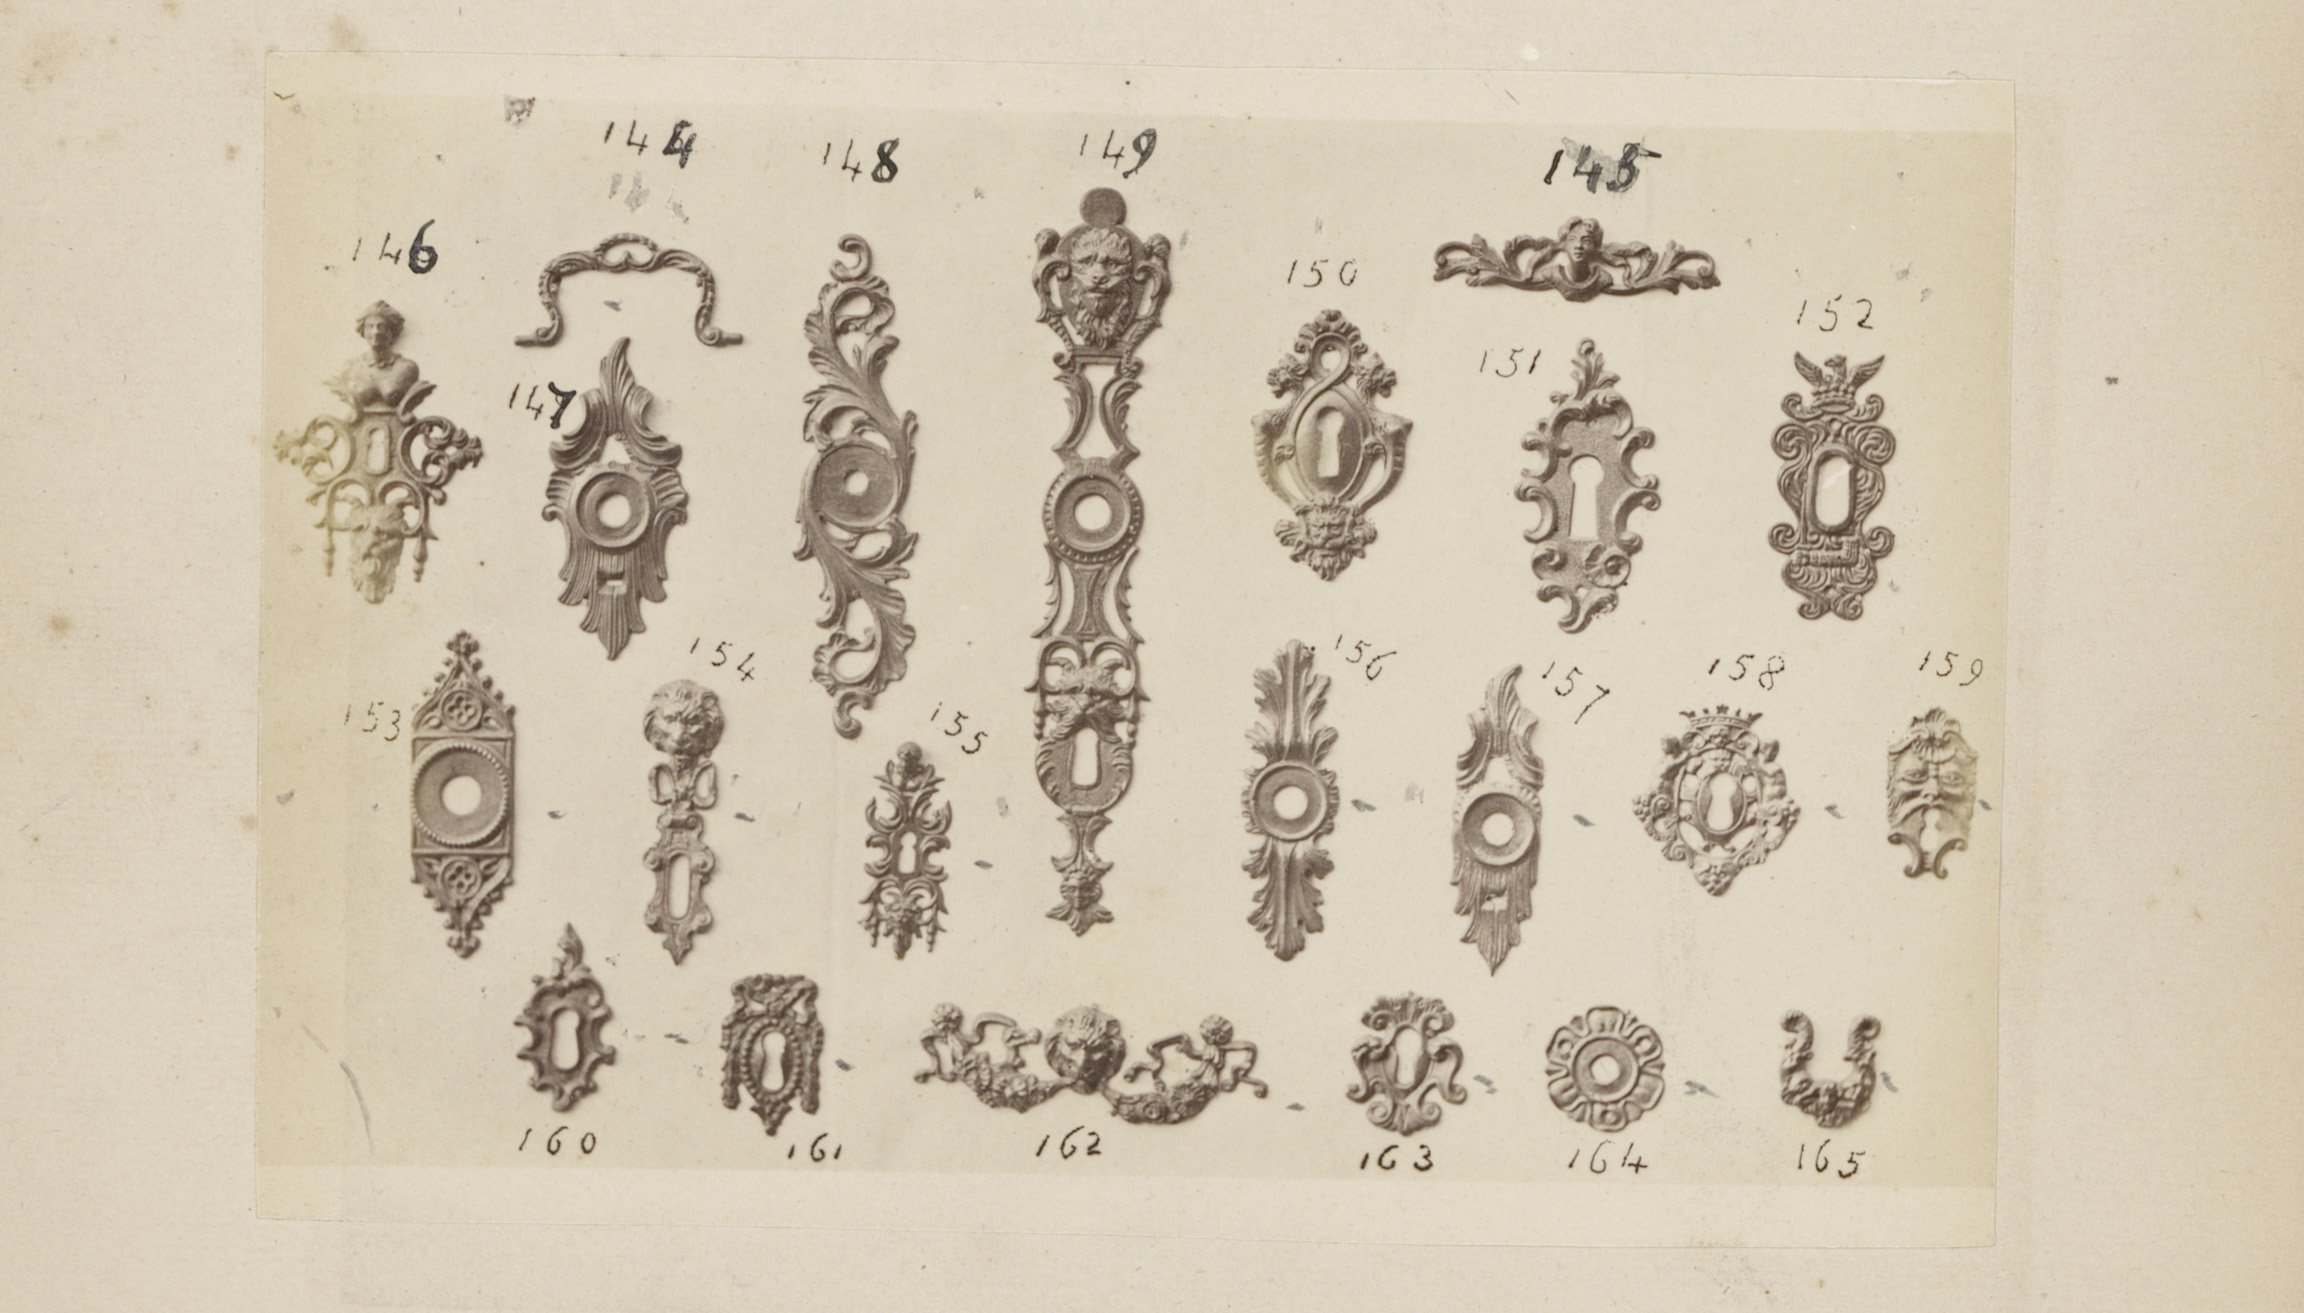 144
148
149
145
146
150
152
151
147
154
156
157
158
159
153
155
160
161
162
163
164
165